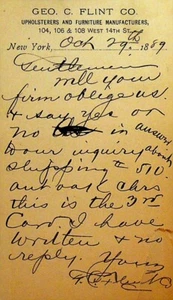 GEO. C. FLINT CO.
UPHOLSTERERS AND FURNITURE MANUFACTURERS,
104, 106 & 108 WEST 14th ST.
New York, Oct 29th 1889
Gentlemen
will your
firm oblige us
& say yes or
no in answer
to our inquiry about
shipping to 510
our oak chrs
this is the 3rd
Card I have
written & no
reply. Yours